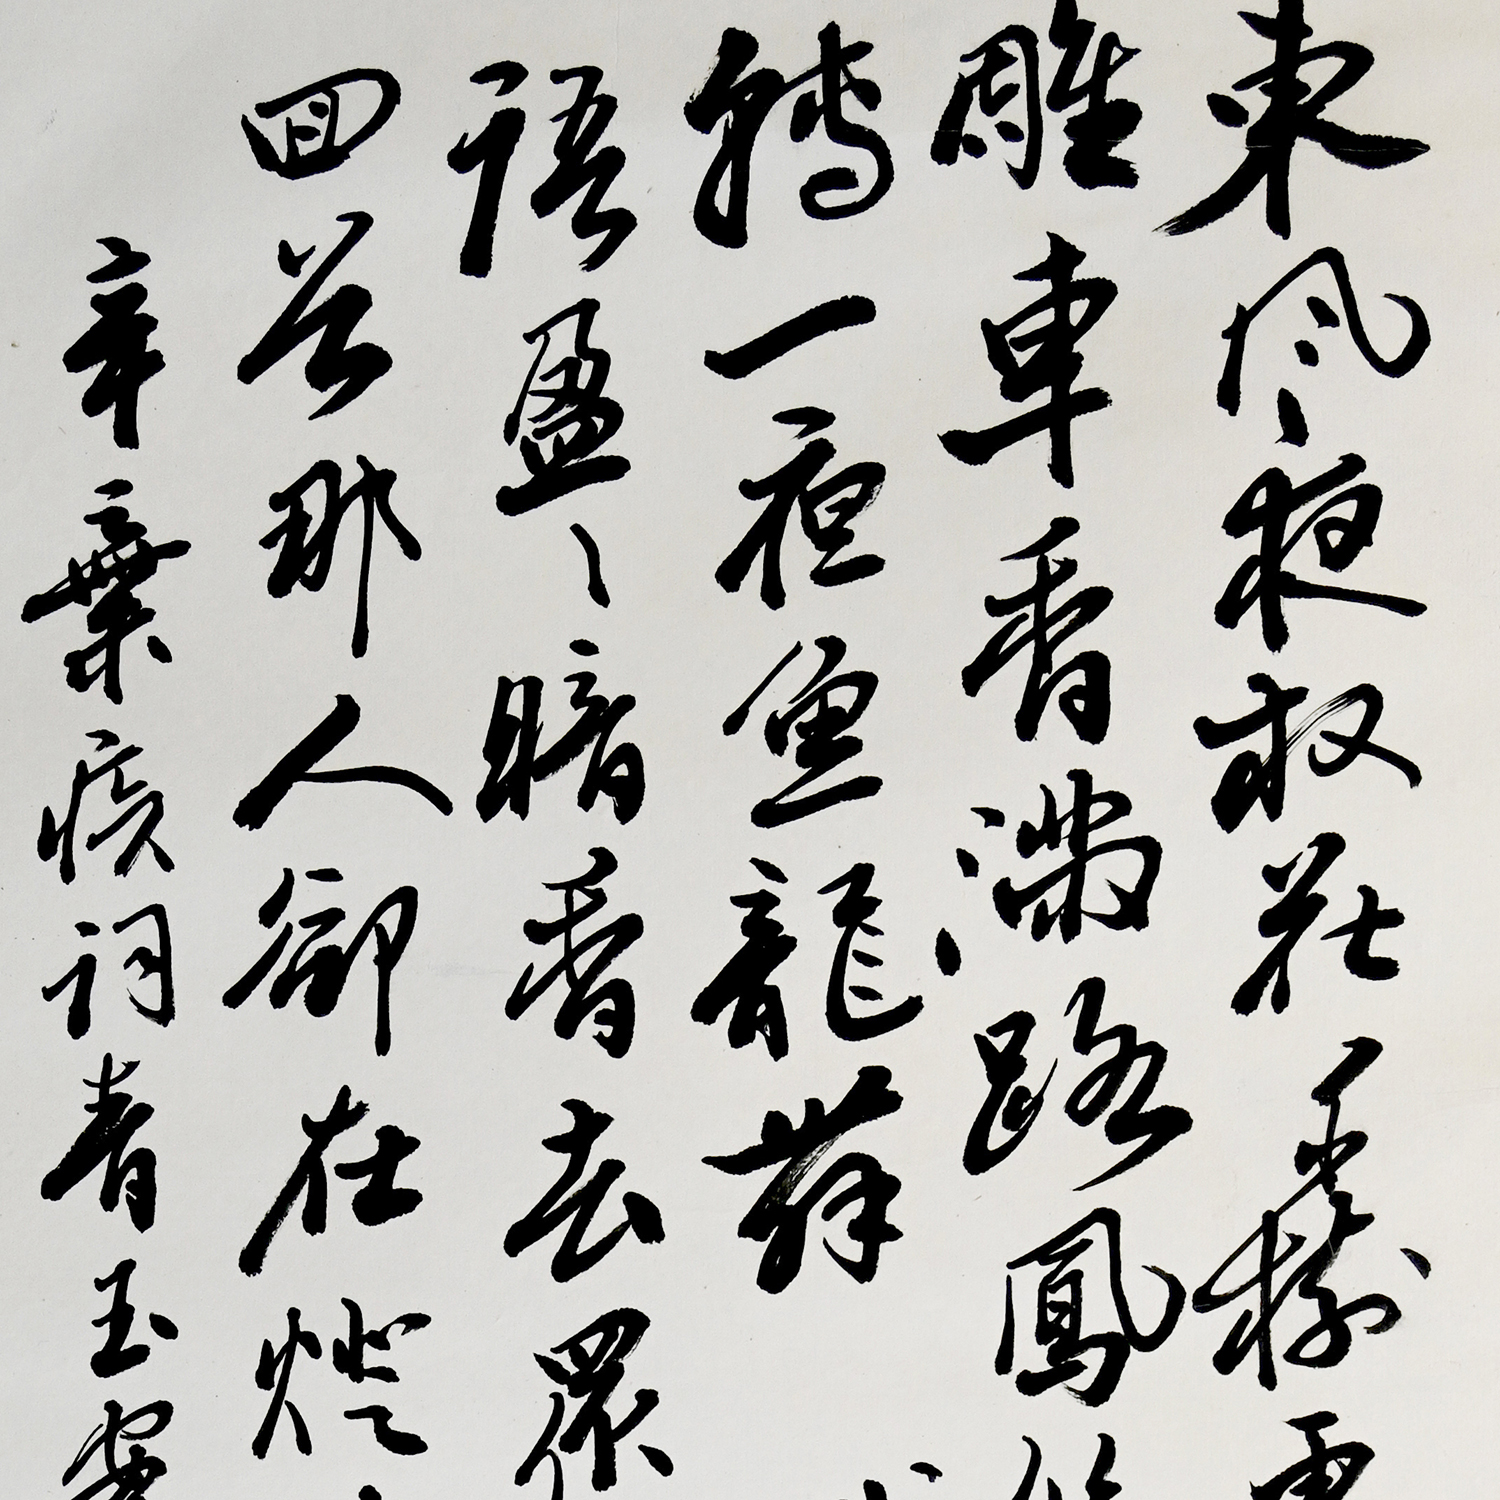 東風夜放花千樹更
雕車香滿路鳳
轉一夜魚龍舞
語盈〻暗香去眾
回首那人卻在燈
辛棄疾詞青玉案